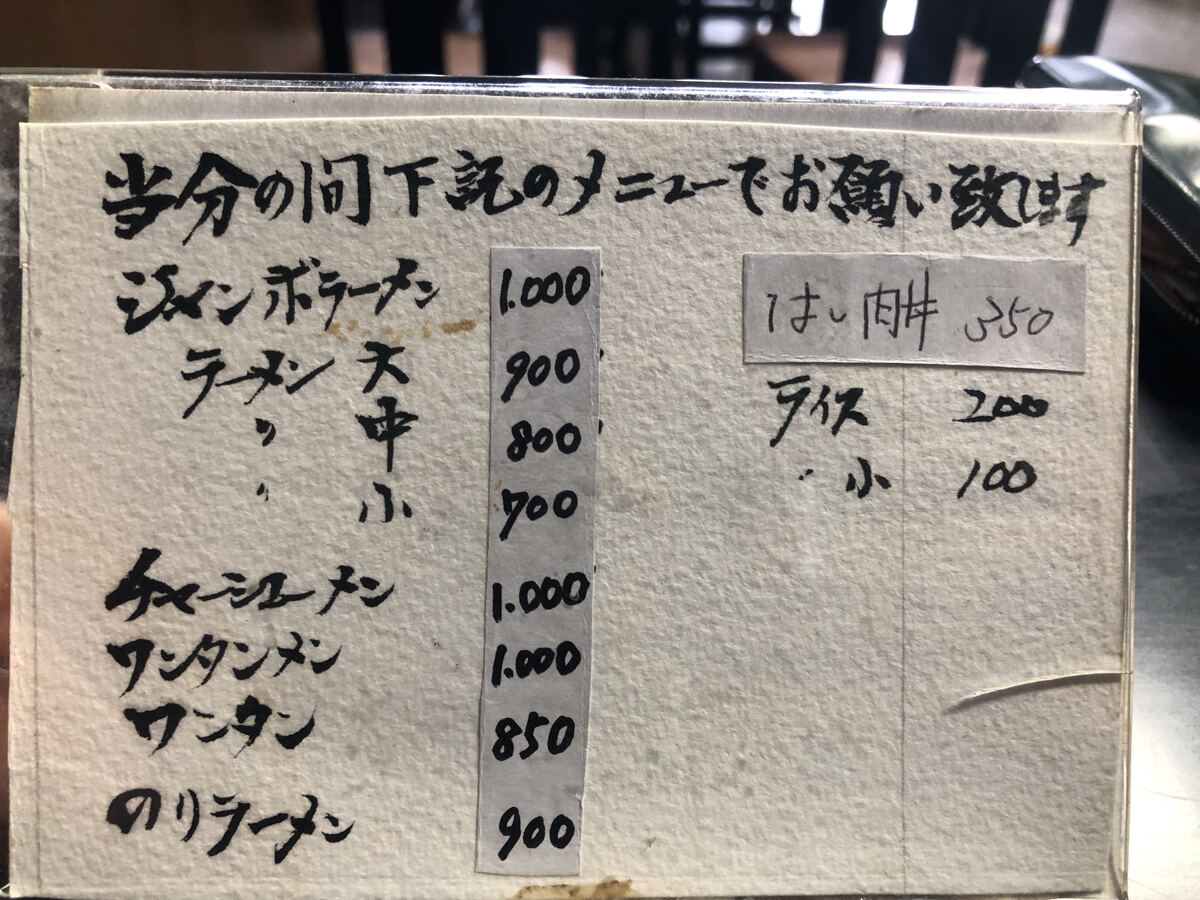 当分の間下記のメニューでお願い致します
ジャンボラーメン 1.000
ラーメン 大 900
〃 中 800
〃 小 700
チャーシューメン 1.000
ワンタンメン 1.000
ワンタン 850
のりラーメン 900
はし肉丼 350
ライス 200
〃 小 100